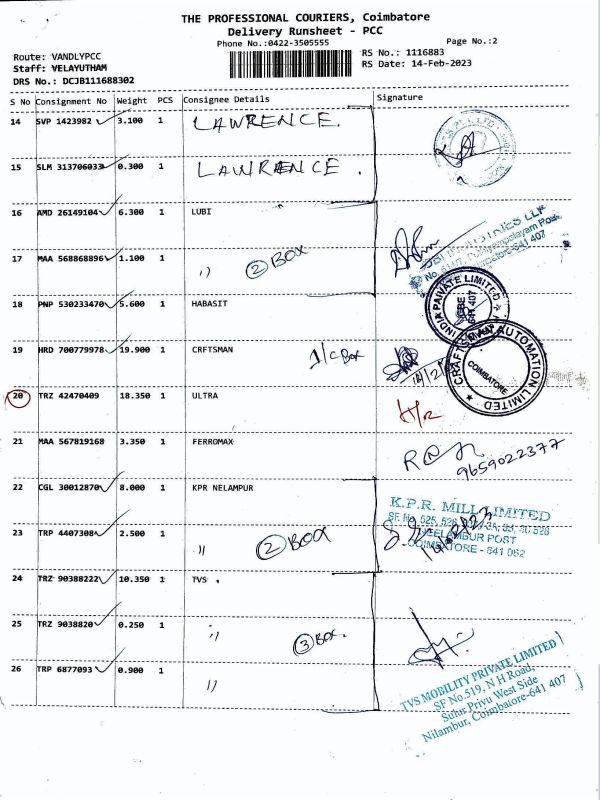 THE PROFESSIONAL COURIERS, Coimbatore
Delivery Runsheet - PCC
Phone No.:0422-3505555
Page No.:2
Route: VANDLYPCC
RS No.: 1116883
Staff: VELAYUTHAM
RS Date: 14-Feb-2023
DRS No.: DCJB111688302
S No Consignment No Weight PCS Consignee Details Signature
14 SVP 1423982 3.100 1 LAWRENCE
15 SLM 313706033 0.300 1 LAWRENCE.
16 AMD 26149104 6.300 1 LUBI
17 MAA 568868896 1.100 1 ,, 2 BOX
INDUSTRIES LLP
641 407
18 PNP 530233470 5.600 1 HABASIT
INDIA PRIVATE LIMITED
CBE
641 407
19 HRD 700779978 19.900 1 CRFTSMAN 1/C Box
CRAFTSMAN AUTOMATION LIMITED
COIMBATORE
20 TRZ 42470409 18.350 1 ULTRA
21 MAA 567819168 3.350 1 FERROMAX
9659022377
22 CGL 30012870 8.000 1 KPR NELAMPUR
K.P.R. MILL LIMITED
SF No. 525, 526
23 TRP 4407308 2.500 1 ,, 2 BOX
NEELAMBUR POST
COIMBATORE - 641 062
24 TRZ 90388222 10.350 1 TVS .
25 TRZ 9038820 0.250 1 ,, 3 BOX.
26 TRP 6877093 0.900 1 ,,
TVS MOBILITY PRIVATE LIMITED
SF No.519, N H Road,
Sulur Privu West Side
Nilambur, Coimbatore-641 407